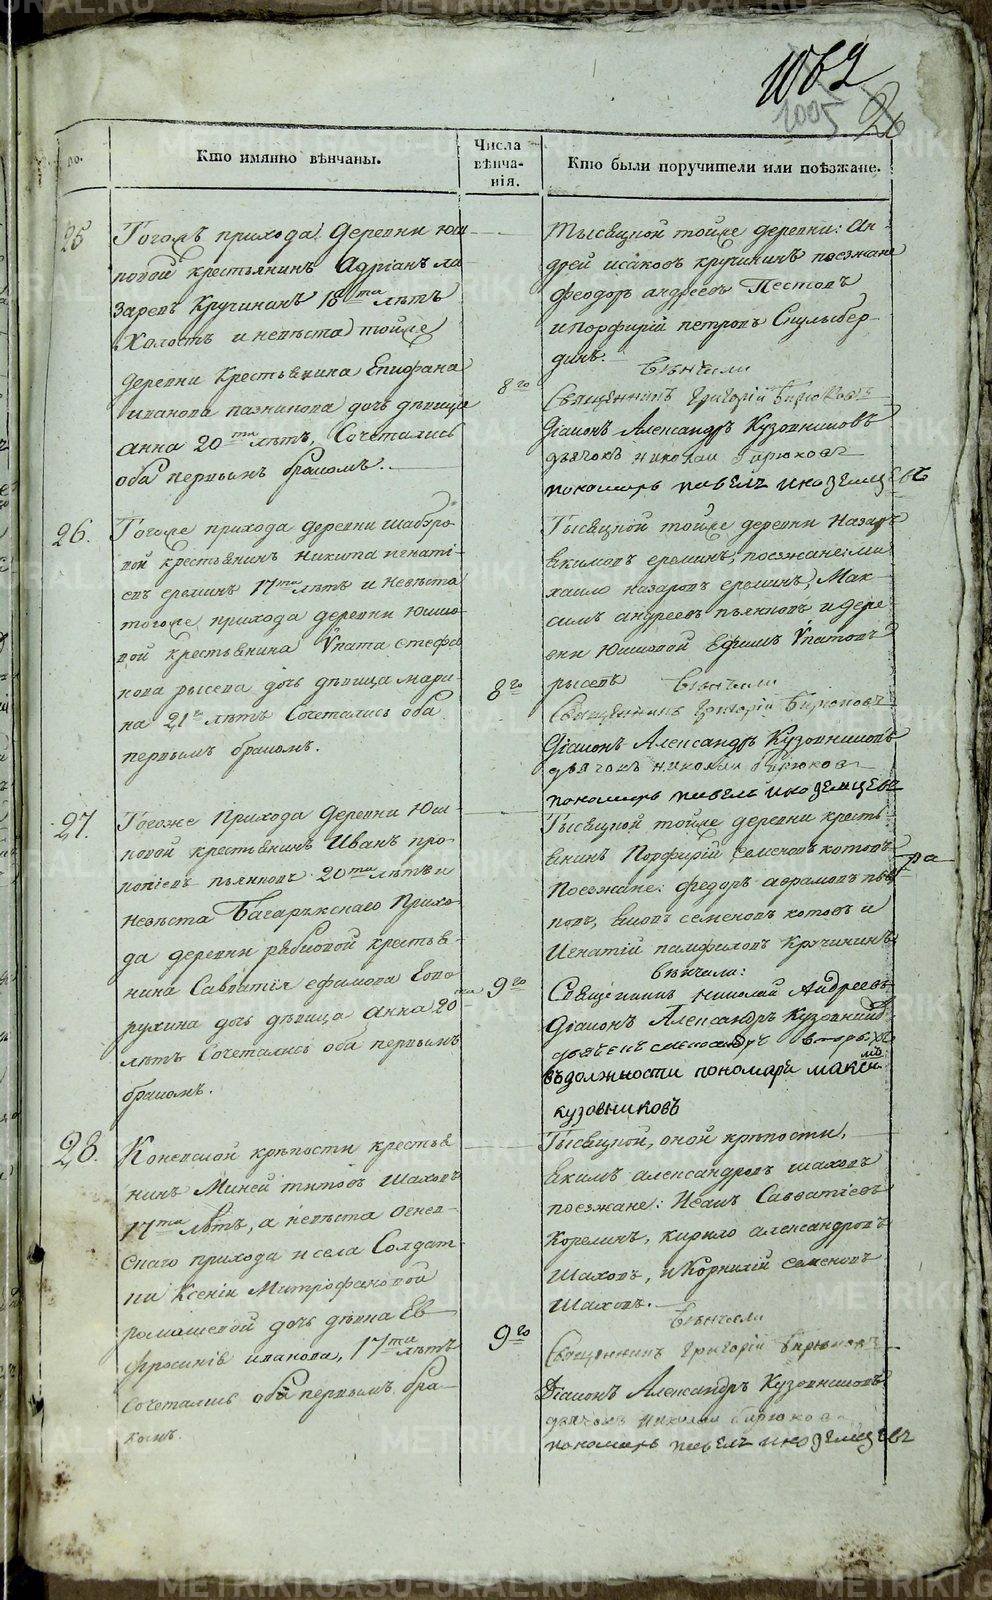 1062
1005
26
но.
Кто имянно вѣнчаны.
Числа
вѣнча-
нія.
Кто были поручители или поѣзжане.
25
Тогожъ прихода деревни Юш
ковой крестьянинъ Адріанъ ла
заревъ Кручининъ 18ти лѣтъ
Холостъ и невѣста тойже
деревни Крестьянина Епифана
иванова пазникова дочь дѣвица
анна 20ти лѣтъ, Сочетались
оба первымъ бракомъ.
8го
Тысяцкой тойже деревни: Ан-
дрей исаковъ кручининъ поезжане
Феодоръ андреевъ Пестовъ
и порфирій петровъ
динъ.
Вѣнчали
Священникъ Григорій Бирюковъ
Діаконъ Александръ Кузовниковъ
дьячокъ николаи бирюковъ
пономарь павелъ иноземцевъ
26.
Тогоже прихода деревни шабуро-
вой крестьянинъ никита игнаті-
евъ ереминъ 17ти лѣтъ и невѣста
тогоже прихода деревни Юшко-
вой крестьянина Ѵпата стефа
нова рысева дочь дѣвица мари-
на 21го лѣтъ Сочетались оба
первымъ бракомъ.
8го
Тысяцкой тойже деревни Назаръ
Екимовъ ереминъ, поезжане: ми
хаило назаровъ ереминъ, Мак-
симъ андреевъ пьянковъ и дере-
вни Юшковой Ефимъ Ѵпатовъ
рысевъ
Вѣнчали
Священникъ Григорій Бирюковъ
Діаконъ Александръ Кузовниковъ
дьячокъ николаи бирюковъ
пономарь павелъ иноземцевъ
27.
Тогоже Прихода Деревни Юш
ковой крестьянинъ Иванъ про-
копіевъ пьянковъ 20ти лѣтъ и
невѣста Багаряжскаго Прихо-
да деревни рябковой крестья-
нина Савватія ефимова Ево
рухина дочь дѣвица анна 20ти
лѣтъ Сочетались оба первымъ
бракомъ.
9го
Тысяцкой тойже деревни кресть
янинъ Порфирій Семеновъ котовъ
Поезжане: Федоръ аврамовъ пьян
ковъ, Яковъ семеновъ котовъ и
Игнатій памфиловъ Кручининъ
вѣнчали:
Священникъ николай Андреевъ
Діаконъ Александръ Кузовниковъ
въ должности пономаря максимъ
кузовниковъ
28.
Коневской крѣпости крестья
нинъ Миней титовъ шаховъ
17ти Лѣтъ, а невѣста Огнев-
скаго прихода и села Солдат-
ки Ксеніи Митрофановой
ромашевой дочь дѣвка Ев-
фросинія иванова, 17ти лѣтъ
сочетались оба первымъ бра-
комъ.
9го
Тысяцкой, оной крѣпости,
Екимъ александровъ шаховъ
поезжане: Иванъ Савватіевъ
Корелинъ, кирило александровъ
Шаховъ, и Корнилій семеновъ
Шаховъ.
Вѣнчали
Священникъ Григорій Бирюковъ
Діаконъ Александръ Кузовниковъ
дьячокъ николаи бирюковъ
пономарь павелъ иноземцевъ
METRIKI.GASU-URAL.RU